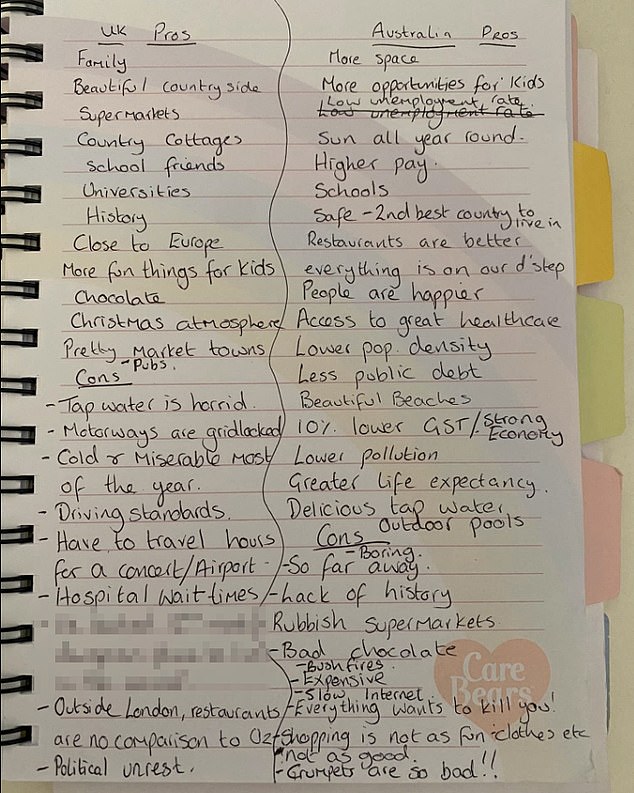 UK Pros
Family
Beautiful countryside
Supermarkets
Country Cottages
School friends
Universities
History
Close to Europe
More fun things for kids
Chocolate
Christmas atmosphere
Pretty Market towns
- Pubs.
Cons
- Tap water is horrid.
- Motorways are gridlocked
- Cold & Miserable most
of the year.
- Driving standards.
- Have to travel hours
for a concert/Airport.
- Hospital wait times
- Outside London, restaurants
are no comparison to Oz
- Political unrest.
Australia Pros
More space
More opportunities for kids
Low unemployment rate.
Low unemployment rate
Sun all year round.
Higher pay.
Schools
Safe - 2nd best country to
live in
Restaurants are better
everything is on our d'step
People are happier
Access to great healthcare
Lower pop. density
Less public debt
Beautiful Beaches
10% lower GST/Strong
Economy
Lower pollution
Greater life expectancy.
Delicious tap water
Outdoor pools
Cons
- Boring.
- So far away.
- Lack of history
Rubbish supermarkets
- Bad chocolate
- Bushfires.
- Expensive
- Slow Internet
- Everything wants to kill you!
- Shopping is not as fun clothes etc
not as good.
- Crumpets are so bad!!
Care
Bears